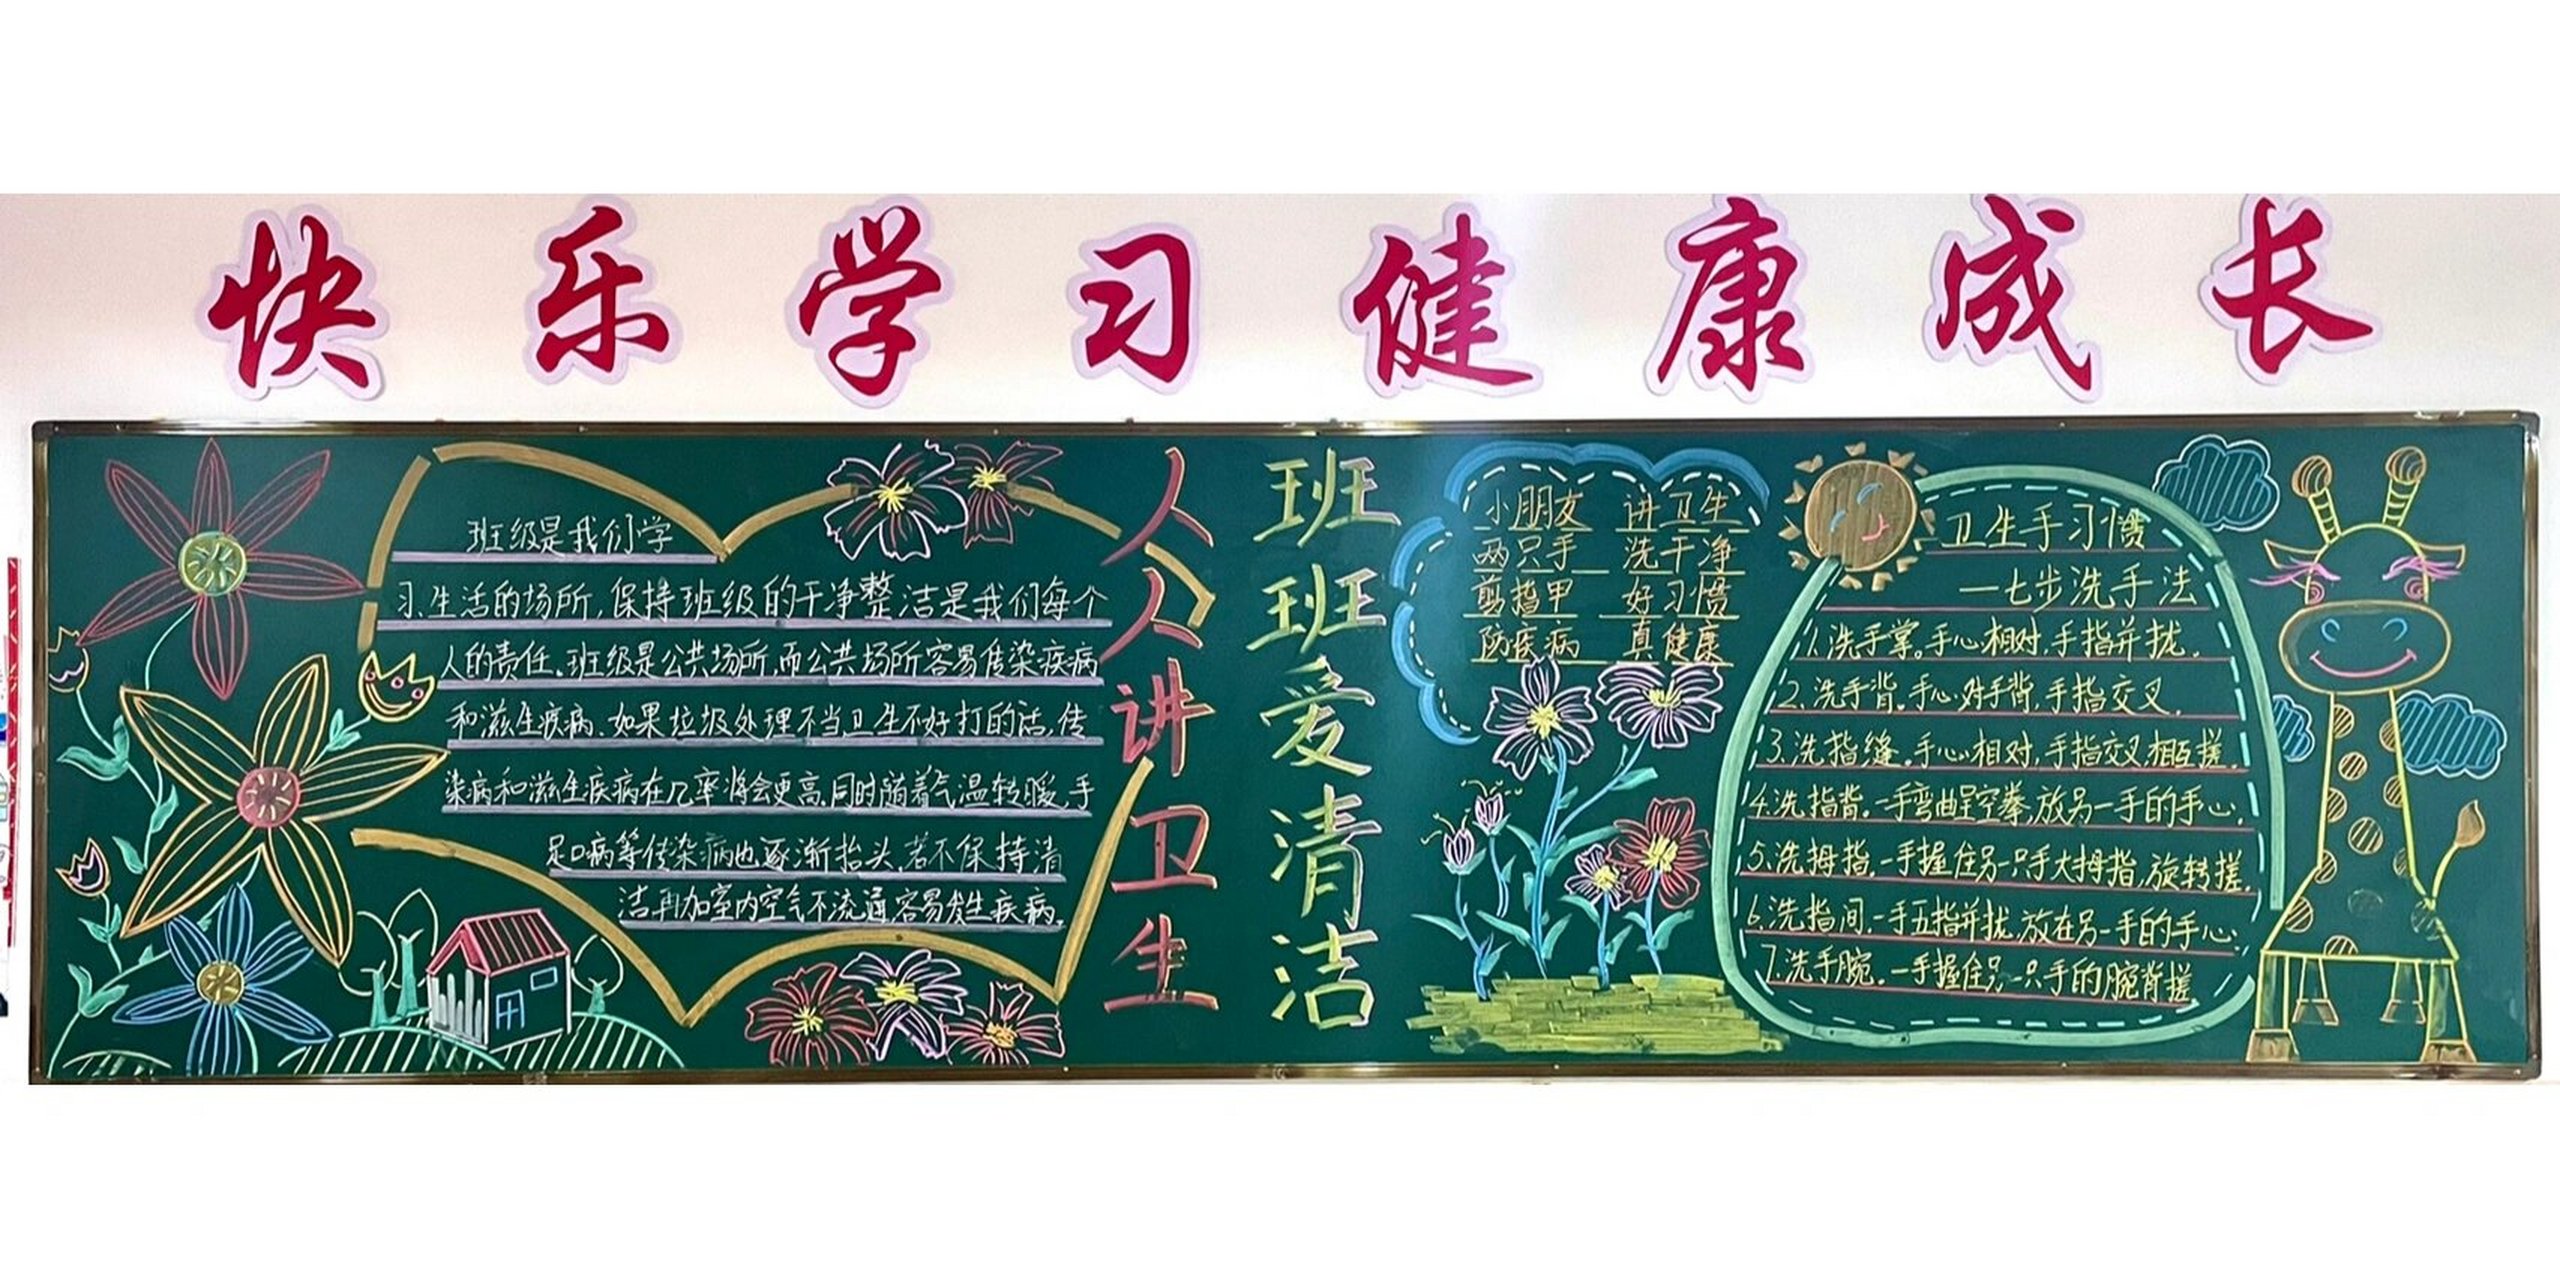 快乐学习健康成长
班级是我们学
习、生活的场所,保持班级的干净整洁是我们每个
人的责任。班级是公共场所,而公共场所容易传染疾病
和滋生疾病、如果垃圾处理不当卫生不好打的话,传
染病和滋生疾病在几率将会更高,同时随着气温转暖,手
足口病等传染病也逐渐抬头,若不保持清
洁再加室内空气不流通,容易发生疾病。
人人讲卫生
班班爱清洁
小朋友 讲卫生
两只手 洗干净
剪指甲 好习惯
防疾病 真健康
卫生手习惯
—七步洗手法
1.洗手掌。手心相对,手指并拢。
2.洗手背。手心对手背,手指交叉。
3.洗指缝。手心相对,手指交叉相互搓。
4.洗指背。一手弯曲呈空拳,放另一手的手心。
5.洗拇指。一手握住另一只手大拇指,旋转搓。
6.洗指间。一手五指并拢,放在另一手的手心。
7.洗手腕。一手握住另一只手的腕背搓